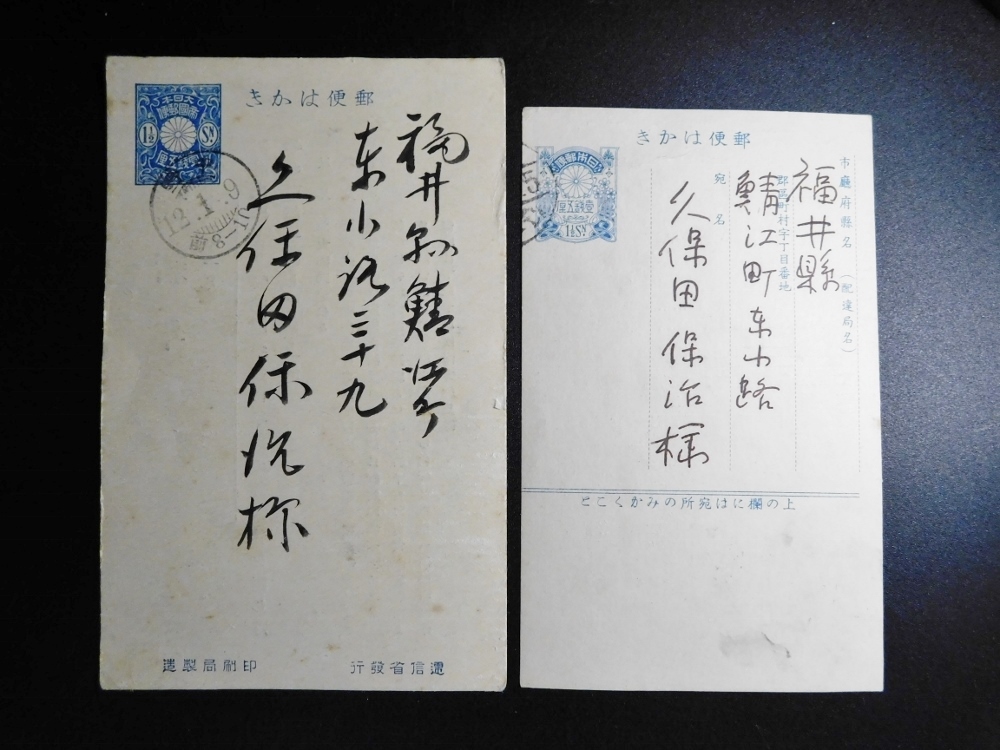 きかは便郵
大日本
帝國郵便
1½ Sn
壹錢五厘
12.1.9
前8-11
福井縣鯖江町
東小路三十九
久保田保治様
造製局刷印
行發省信遞
きかは便郵
大日本帝國郵便
壹錢五厘
1½Sn
市廳府縣名（配達局名）
福井縣
郡區町村字丁目番地
鯖江町東小路
宛名
久保田保治様
とこくかみの所宛はに欄の上